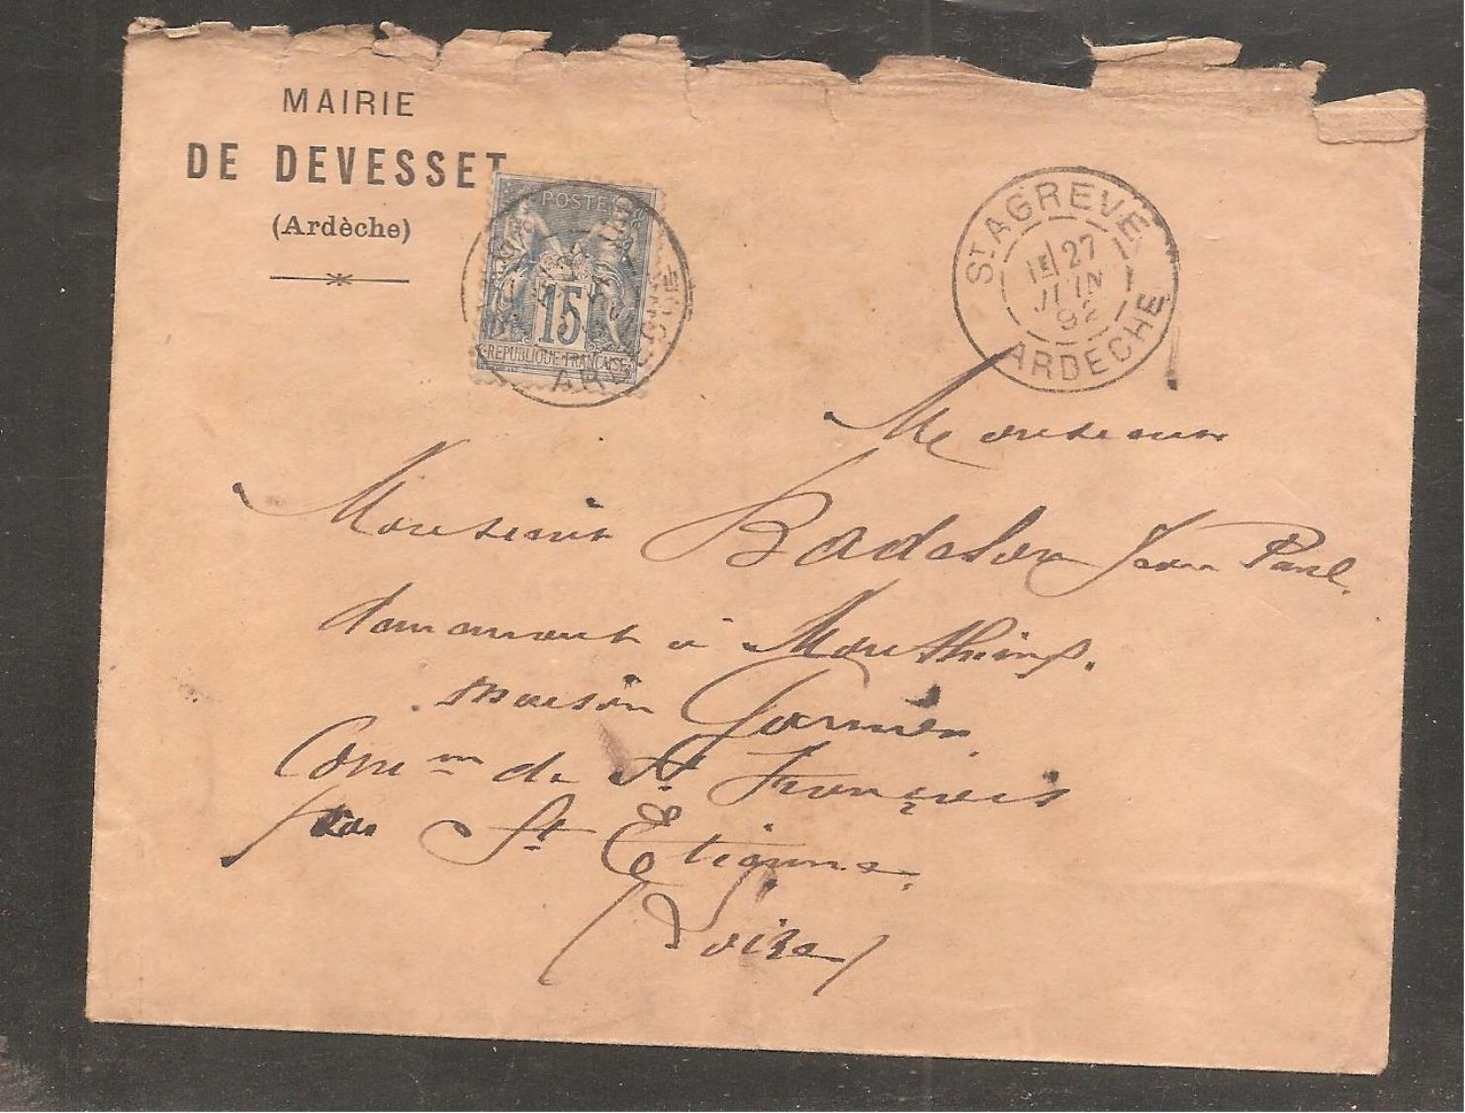 MAIRIE
DE DEVESSET
(Ardèche)
POSTES
15
REPUBLIQUE FRANCAISE
ST AGREVE
1E 27
JUIN
92
ARDECHE
Monsieur
Monsieur Badelon Jean Paul.
demeurant à Monthieux.
maison Garnier
Com de St François
par St Etienne.
(Loire)